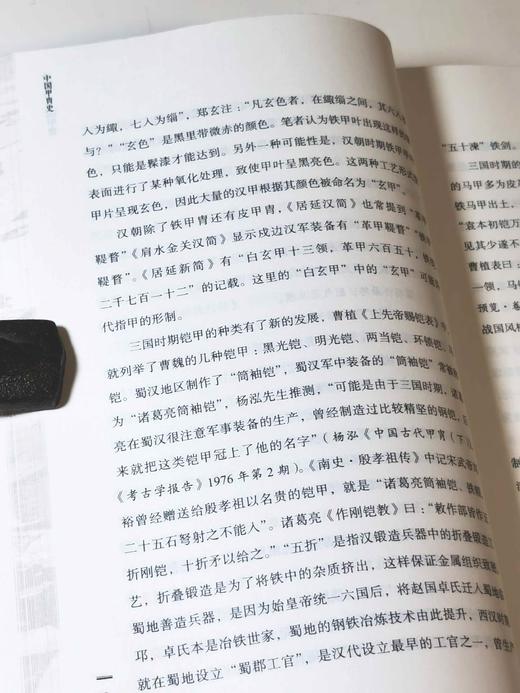 中国甲胄史
入为緅，七入为缁"，郑玄注："凡玄色者，在緅缁之间，其六入
与？""玄色"是黑里带微赤的颜色。笔者认为铁甲叶出现这样的
色，只能是髹漆才能达到。另外一种可能性是，汉朝时期铁甲
表面进行了某种氧化处理，致使甲叶呈黑亮色。这两种工艺形式
甲片呈现玄色，因此大量的汉甲根据其颜色被命名为"玄甲"。
汉朝除了铁甲胄还有皮甲胄，《居延汉简》也常提到"革甲
鞮瞀"《肩水金关汉简》显示戍边汉军装备有"革甲鞮瞀""铁
鞮瞀"。《居延新简》有"白玄甲十三领，革甲六百五十，铁
二千七百一十二"的记载。这里的"白玄甲"中的"玄甲"可能
代指甲的形制。
三国时期铠甲的种类有了新的发展，曹植《上先帝赐铠表》中
就列举了曹魏的几种铠甲：黑光铠、明光铠、两当铠、环锁铠、
铠。蜀汉地区制作了"筒袖铠"，蜀汉军中装备的"筒袖铠"常被
为"诸葛亮筒袖铠"，杨泓先生推测，"可能是由于三国时期，诸葛
亮在蜀汉很注意军事装备的生产，曾经制造过比较精坚的钢铠，
来就把这类铠甲冠上了他的名字"（杨泓《中国古代甲胄（下）》
《考古学报告》1976年第2期）。《南史·殷孝祖传》中记宋武帝
裕曾经赠送给殷孝祖以名贵的铠甲，就是"诸葛亮筒袖铠、铁帽
二十五石弩射之不能入"。诸葛亮《作刚铠教》曰："敕作部皆作五
折刚铠，十折矛以给之。""五折"是指汉锻造兵器中的折叠锻造
艺，折叠锻造是为了将铁中的杂质挤出，这样保证金属组织致密
蜀地善造兵器，是因为始皇帝统一六国后，将赵国卓氏迁入蜀地临
邛，卓氏本是冶铁世家，蜀地的钢铁冶炼技术由此提升，西汉时期
就在蜀地设立"蜀郡工官"，是汉代设立最早的工官之一，曾生产
"五十湅"铁剑。
三国时期的
的马甲多为皮革
铁马甲出土，
"袁本初铠万
见其少遂不
曹植表曰：
一领，马铠
预览·卷
战国风格
制